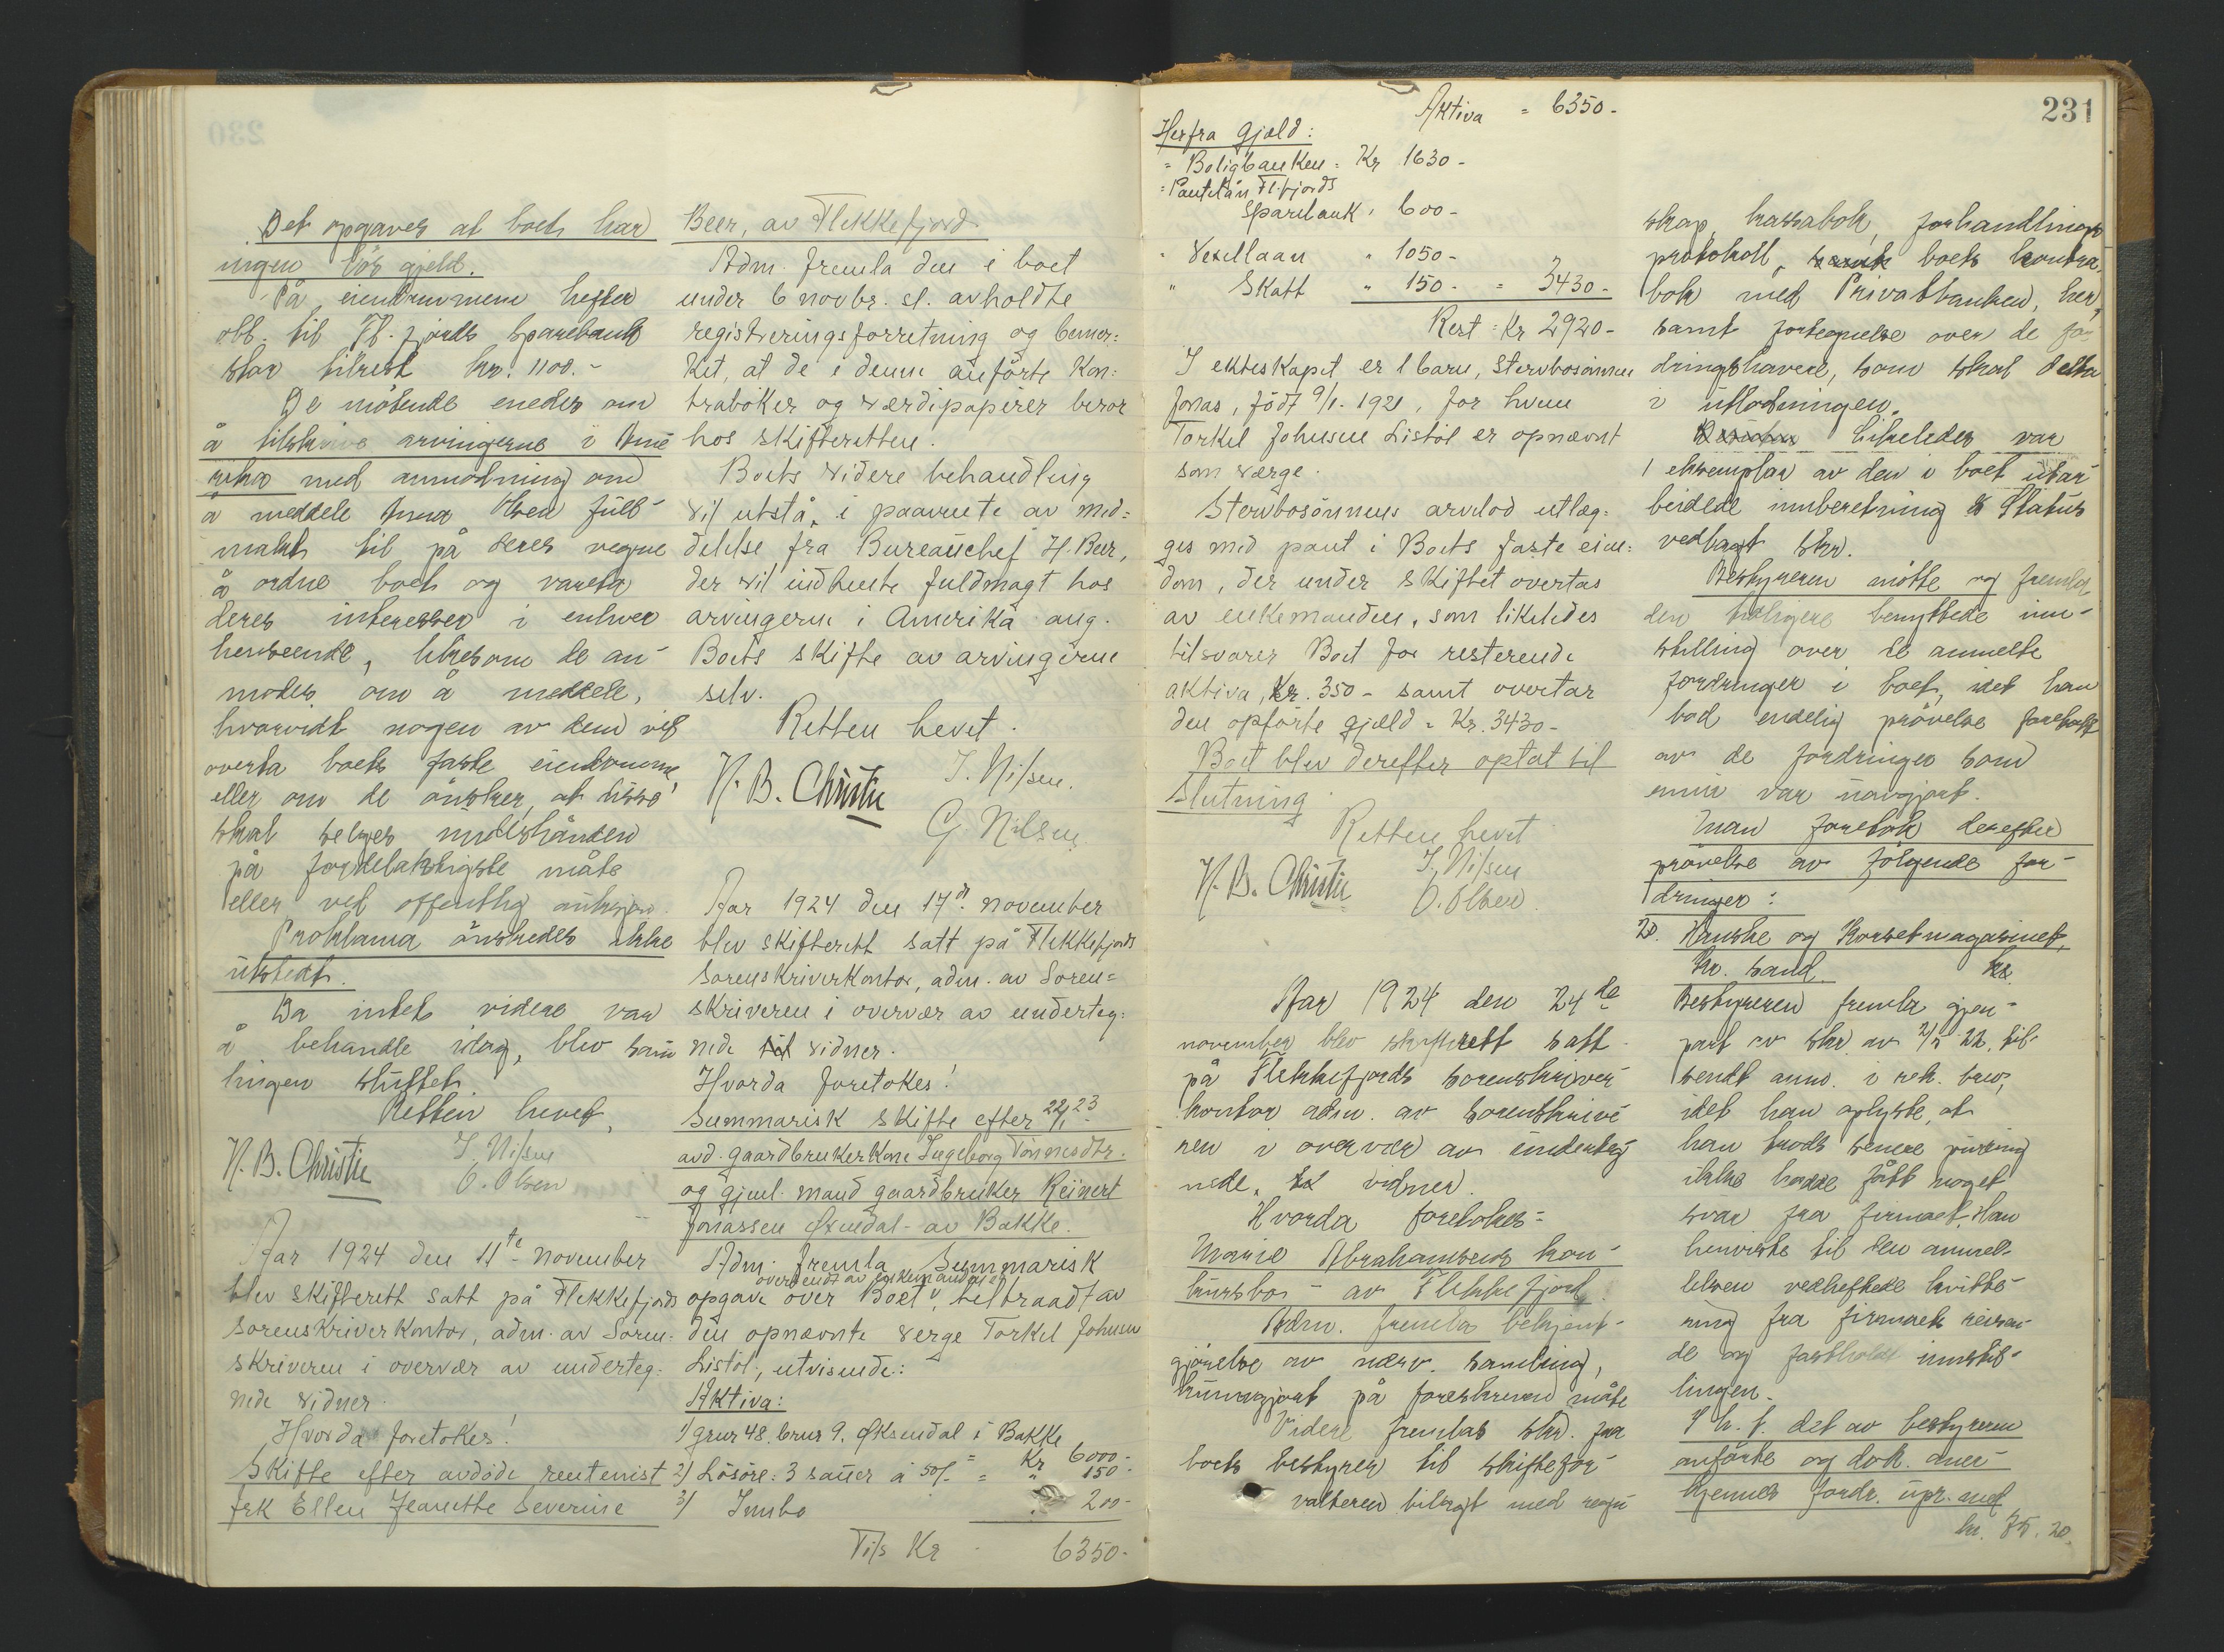 Det opgaves at boets har
ingen lös gjeld.
På eiendommene hefter
obl. til Fl.fjords Sparebank
stor tilrest kr. 1100.-
De mötende enedes om
å tilskrive arvingerne i Ame
rika med anmodning om
å meddele Anna Olsen full-
makt til på deres vegne
å ordne boet og vareta
deres interesser i enhver
henseende, likesom de an-
modes om å meddele,
hvorvidt nogen av dem vil
overta boets faste eiendomme
eller om de önsker, at disse
skal selges underhånden
på fordelaktigste måte
eller ved offentlig auksjon.
Proklama önskedes ikke
utstedt.
Da intet videre var
å behandle idag, blev sam
lingen sluttet
Retten hevet,
N. B. Christie J. Nilsen
O. Olsen
Aar 1924 den 11te november
blev skifterett satt på Flekkefjords
sorenskriverkontor, adm. av Soren-
skriveren i overvær av underteg-
nede vidner.
Hvorda foretokes!
Skifte efter avdöde rentenist
frk Ellen Jeanette Severine
Beer, av Flekkefjord.
Adm. fremla den i boet
under 6 novbr. sl. avholdte
registreringsforretning og bemer-
ket, at de i denne anförte kon-
traböker og værdipapirer beror
hos skifteretten.
Boets videre behandling
vil utstå, i paavente av med-
delelse fra Bureauchef H. Beer,
der vil indhente fuldmagt hos
arvingerne i Amerika ang.
Boets skifte av arvingerne
selv.
Retten hevet.
N. B. Christie J. Nilsen.
G. Nilsen
Aar 1924 den 17de november
blev skifterett satt på Flekkefjords
Sorenskriverkontor, adm. av Soren-
skriveren i overvær av underteg-
nede vidner.
Hvorda foretokes!
Summarisk skifte efter 22/1 23
avd. gaardbrukerkone Ingeborg Tönnesdtr.
og gjenl. mand gaardbruker Reinert
Jonassen Øksendal - av Bakke.
Adm. fremla Summarisk
overendt av enkemanden og
opgave over Boet, tiltraadt av
den opnævnte verge Torkel Johnsen
Listöl, utvisende:
Aktiva:
1) gnr 48. bnr 9. Øksendal i Bakke = Kr 6000-
2) Lösöre: 3 sauer à 50/- = " 150-
3) Innbo 200-
Tils Kr 6350-
231
Aktiva = 6350-
Herfra Gjæld:
" Boligbanken = Kr 1630-
" Pantelån Fl.fjords
Sparebank " 600-
" Vexellaan " 1050-
" Skatt " 150- = 3430-
Rest = Kr 2920-
I ekteskapet er 1 barn, Stervbosönnen
Jonas, födt 9/1. 1921, for hvem
Torkel Johnsen Listöl er opnævnt
som værge.
Stervbosönnens arvelod utlæg-
ges med pant i Boets faste eien-
dom, der under skiftet overtas
av enkemanden, som likeledes
tilsvarer Boet for resterende
aktiva, Kr. 350- samt overtar
den opförte gjæld = Kr. 3430-
Boet blev derefter optat til
Slutning.
Retten hevet
N. B. Christie J. Nilsen
O. Olsen.
Aar 1924 den 24de
november blev skifterett satt
på Flekkefjords sorenskriver-
kontor adm. av sorenskrive
ren i overvær av underteg
nede vidner.
Hvorda foretokes:
Marie Abrahamsens kon-
kursbo - av Flekkefjord.
Adm. fremla bekjent-
gjörelse av nærv. samling,
kunngjort på foreskreven måte
Videre fremlas skr. fra
boets bestyrer til skiftefor-
valteren bilagt med regn
skap, kassabok, forhandlings
protokoll, boets kontra-
bok med Privatbanken, her,
samt fortegnelse over de for
dringshavere, som skal delta
i utlodningen.
Likeledes var
1 eksemplar av den i boet utar
beidede innberetning & Status
vedlagt skr.
Bestyreren mötte og fremla
den tidligere benyttede inn-
stilling over de anmeldte
fordringer i boet, idet han
bad endelig prövelse foretatt
av de fordringer som
ennu var uavgjort.
Man foretok derefter
prövelse av fölgende for-
dringer:
20. Hanske og Korsetmagasinet,
Kr. sand.
Bestyreren fremla gjen-
part av skr. av 2/5 22, til-
sendt anm. i rek. brev,
idet han oplyste, at
han trods senere purring
ikke hadde fått noget
svar fra firmaet. Han
henviste til den anmel-
delsen vedheftede kvitte-
ring fra firmaets reisen-
de og fastholdt innstil-
lingen.
I h. t. det av bestyreren
anförte og dok. aner-
kjennes fordr. upr. med
kr. 35. 20